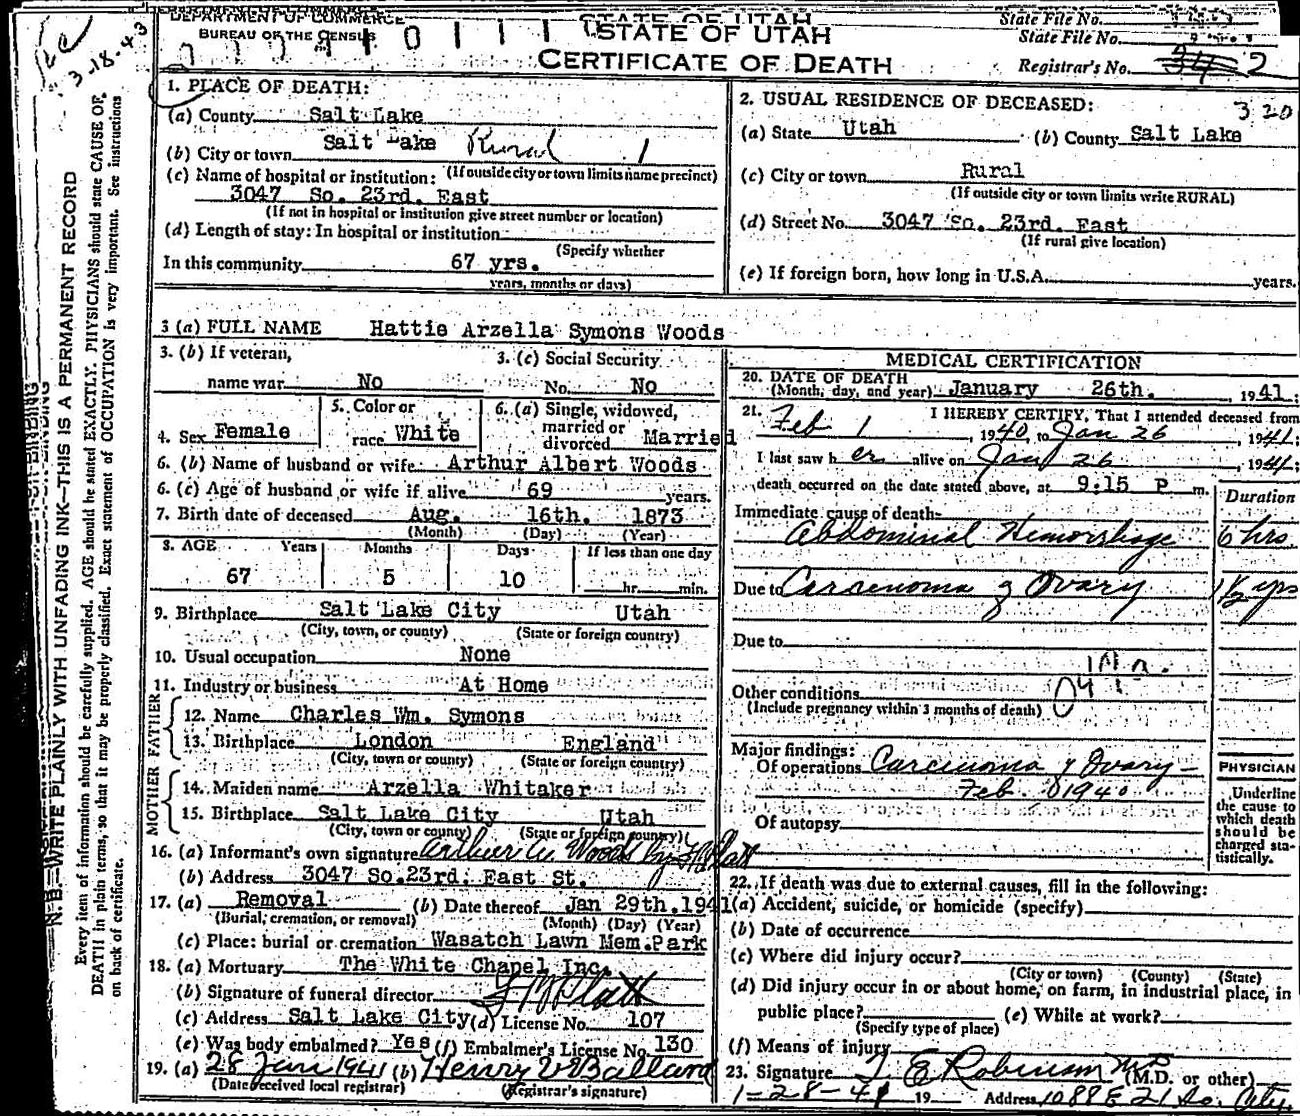 DEPARTMENT OF COMMERCE
BUREAU OF THE CENSUS
STATE OF UTAH
CERTIFICATE OF DEATH
State File No.
State File No.
Registrar's No. 34 2
3-18-43
3 20
1. PLACE OF DEATH:
(a) County Salt Lake
(b) City or town Salt Lake Rural 1
(If outside city or town limits name precinct)
(c) Name of hospital or institution:
3047 So. 23rd. East
(If not in hospital or institution give street number or location)
(d) Length of stay: In hospital or institution
(Specify whether
In this community 67 yrs.
years, months or days)
2. USUAL RESIDENCE OF DECEASED:
(a) State Utah (b) County Salt Lake
(c) City or town Rural
(If outside city or town limits write RURAL)
(d) Street No. 3047 So. 23rd. East
(If rural give location)
(e) If foreign born, how long in U.S.A. years.
3 (a) FULL NAME Hattie Arzella Symons Woods
3. (b) If veteran, name war No
3. (c) Social Security No. No
4. Sex Female
5. Color or race White
6. (a) Single, widowed, married or divorced Married
6. (b) Name of husband or wife Arthur Albert Woods
6. (c) Age of husband or wife if alive 69 years.
7. Birth date of deceased Aug. 16th. 1873
(Month) (Day) (Year)
8. AGE Years Months Days If less than one day
67 5 10 hr. min.
9. Birthplace Salt Lake City Utah
(City, town, or county) (State or foreign country)
10. Usual occupation None
11. Industry or business At Home
FATHER
12. Name Charles Wm. Symons
13. Birthplace London England
(City, town or county) (State or foreign country)
MOTHER
14. Maiden name Arzella Whitaker
15. Birthplace Salt Lake City Utah
(City, town or county) (State or foreign country)
16. (a) Informant's own signature Arthur A. Woods By
(b) Address 3047 So.23rd. East St.
17. (a) Removal (b) Date thereof Jan 29th.1941
(Burial, cremation, or removal) (Month) (Day) (Year)
(c) Place: burial or cremation Wasatch Lawn Mem.Park
18. (a) Mortuary The White Chapel Inc.
(b) Signature of funeral director
(c) Address Salt Lake City (d) License No. 107
(e) Was body embalmed? Yes (f) Embalmer's License No. 130
19. (a) 28 Jan 1941 (b) Henry
(Date received local registrar) (Registrar's signature)
MEDICAL CERTIFICATION
20. DATE OF DEATH
(Month, day, and year) January 26th. , 1941;
21. I HEREBY CERTIFY, That I attended deceased from
Feb 1 , 1940, to Jan 26 , 1941;
I last saw her alive on Jan 26 , 1941;
death occurred on the date stated above, at 9:15 P m.
Duration
Immediate cause of death
Abdominal Hemorrhage 6 hrs.
Due to Carcinoma of Ovary 1½ yrs
Due to
Other conditions
(Include pregnancy within 3 months of death)
Major findings:
Of operations Carcinoma of Ovary -
Feb. 1940
Of autopsy
PHYSICIAN
Underline the cause to which death should be charged statistically.
22. If death was due to external causes, fill in the following:
(a) Accident, suicide, or homicide (specify)
(b) Date of occurrence
(c) Where did injury occur?
(City or town) (County) (State)
(d) Did injury occur in or about home, on farm, in industrial place, in
public place? (e) While at work?
(Specify type of place)
(f) Means of injury
23. Signature E Robinson M.D. (M.D. or other)
1-28-41 19 Address 1088 E 21 So. City.
N. B.—WRITE PLAINLY WITH UNFADING INK—THIS IS A PERMANENT RECORD
Every item of information should be carefully supplied. AGE should be stated EXACTLY. PHYSICIANS should state CAUSE OF
DEATH in plain terms, so that it may be properly classified. Exact statement of OCCUPATION is very important. See instructions
on back of certificate.